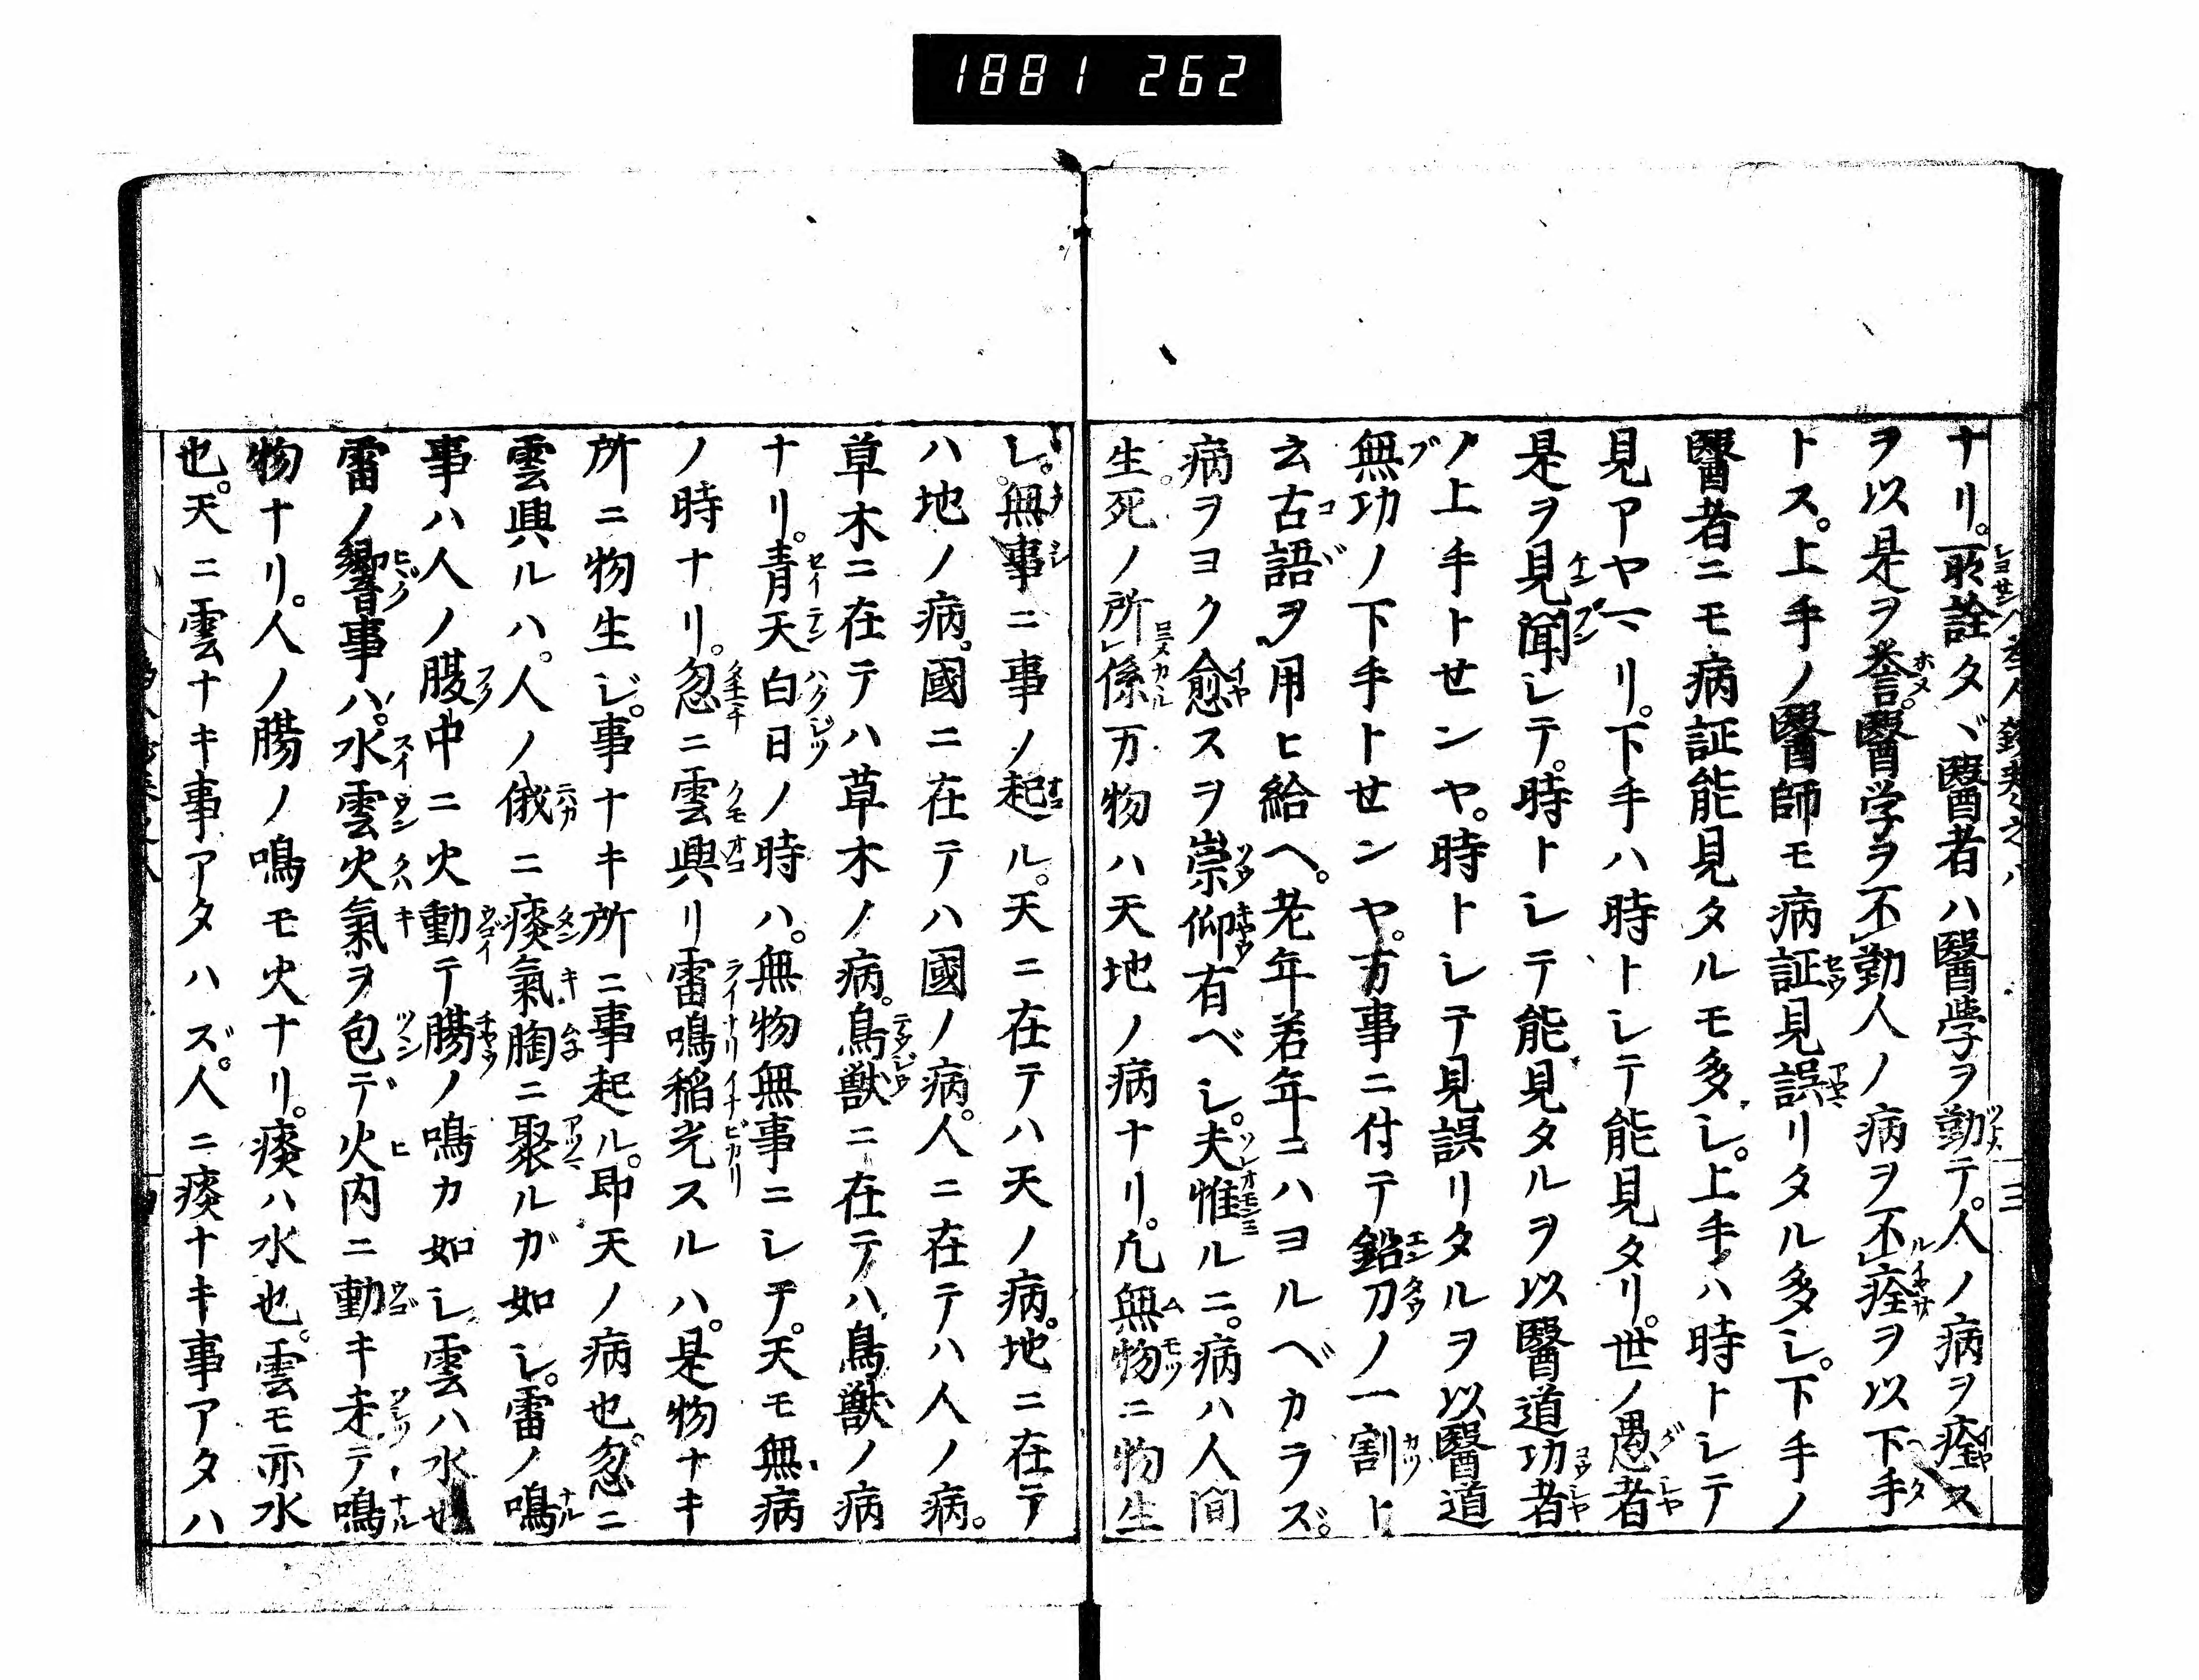 1881 262
ナリ。所詮タヾ醫者ハ醫學ヲ勤テ。人ノ病ヲ痊ス
ヲ以是ヲ誉。醫学ヲ不勤人ノ病ヲ不痊ヲ以下手
トス。上手ノ醫師モ病証見誤リタル多シ。下手ノ
醫者ニモ病証能見タルモ多シ。上手ハ時トシテ
見アヤマリ。下手ハ時トシテ能見タリ。世ノ愚者
是ヲ見聞シテ。時トシテ能見タルヲ以醫道功者
ノ上手トせンヤ。時トシテ見誤リタルヲ以醫道
無功ノ下手トせンヤ。万事ニ付テ鉛刀ノ一割ト
云古語ヲ用ヒ給ヘ。老年若年ニハヨルベカラズ。
病ヲヨク愈スヲ崇仰有ベシ。夫惟ルニ。病ハ人間
生死ノ所係万物ハ天地ノ病ナリ。凡無物ニ物生
シ。無事ニ事ノ起ル。天ニ在テハ天ノ病。地ニ在テ
ハ地ノ病。國ニ在テハ國ノ病。人ニ在テハ人ノ病。
草木ニ在テハ草木ノ病。鳥獣ニ在テハ鳥獣ノ病
ナリ。青天白日ノ時ハ。無物無事ニシテ。天モ無病
ノ時ナリ。忽ニ雲興リ雷鳴稲光スルハ。是物ナキ
所ニ物生ジ。事ナキ所ニ事起ル。即天ノ病也。忽ニ
雲興ルハ。人ノ俄ニ痰氣胸ニ聚ルガ如シ。雷ノ鳴
事ハ人ノ腹中ニ火動テ腸ノ鳴カ如シ雲ハ水也
雷ノ響事ハ。水雲火氣ヲ包デ火内ニ動キ走テ鳴
物ナリ。人ノ腸ノ鳴モ火ナリ。痰ハ水也。雲モ亦水
也。天ニ雲ナキ事アタハズ。人ニ痰ナキ事アタハ